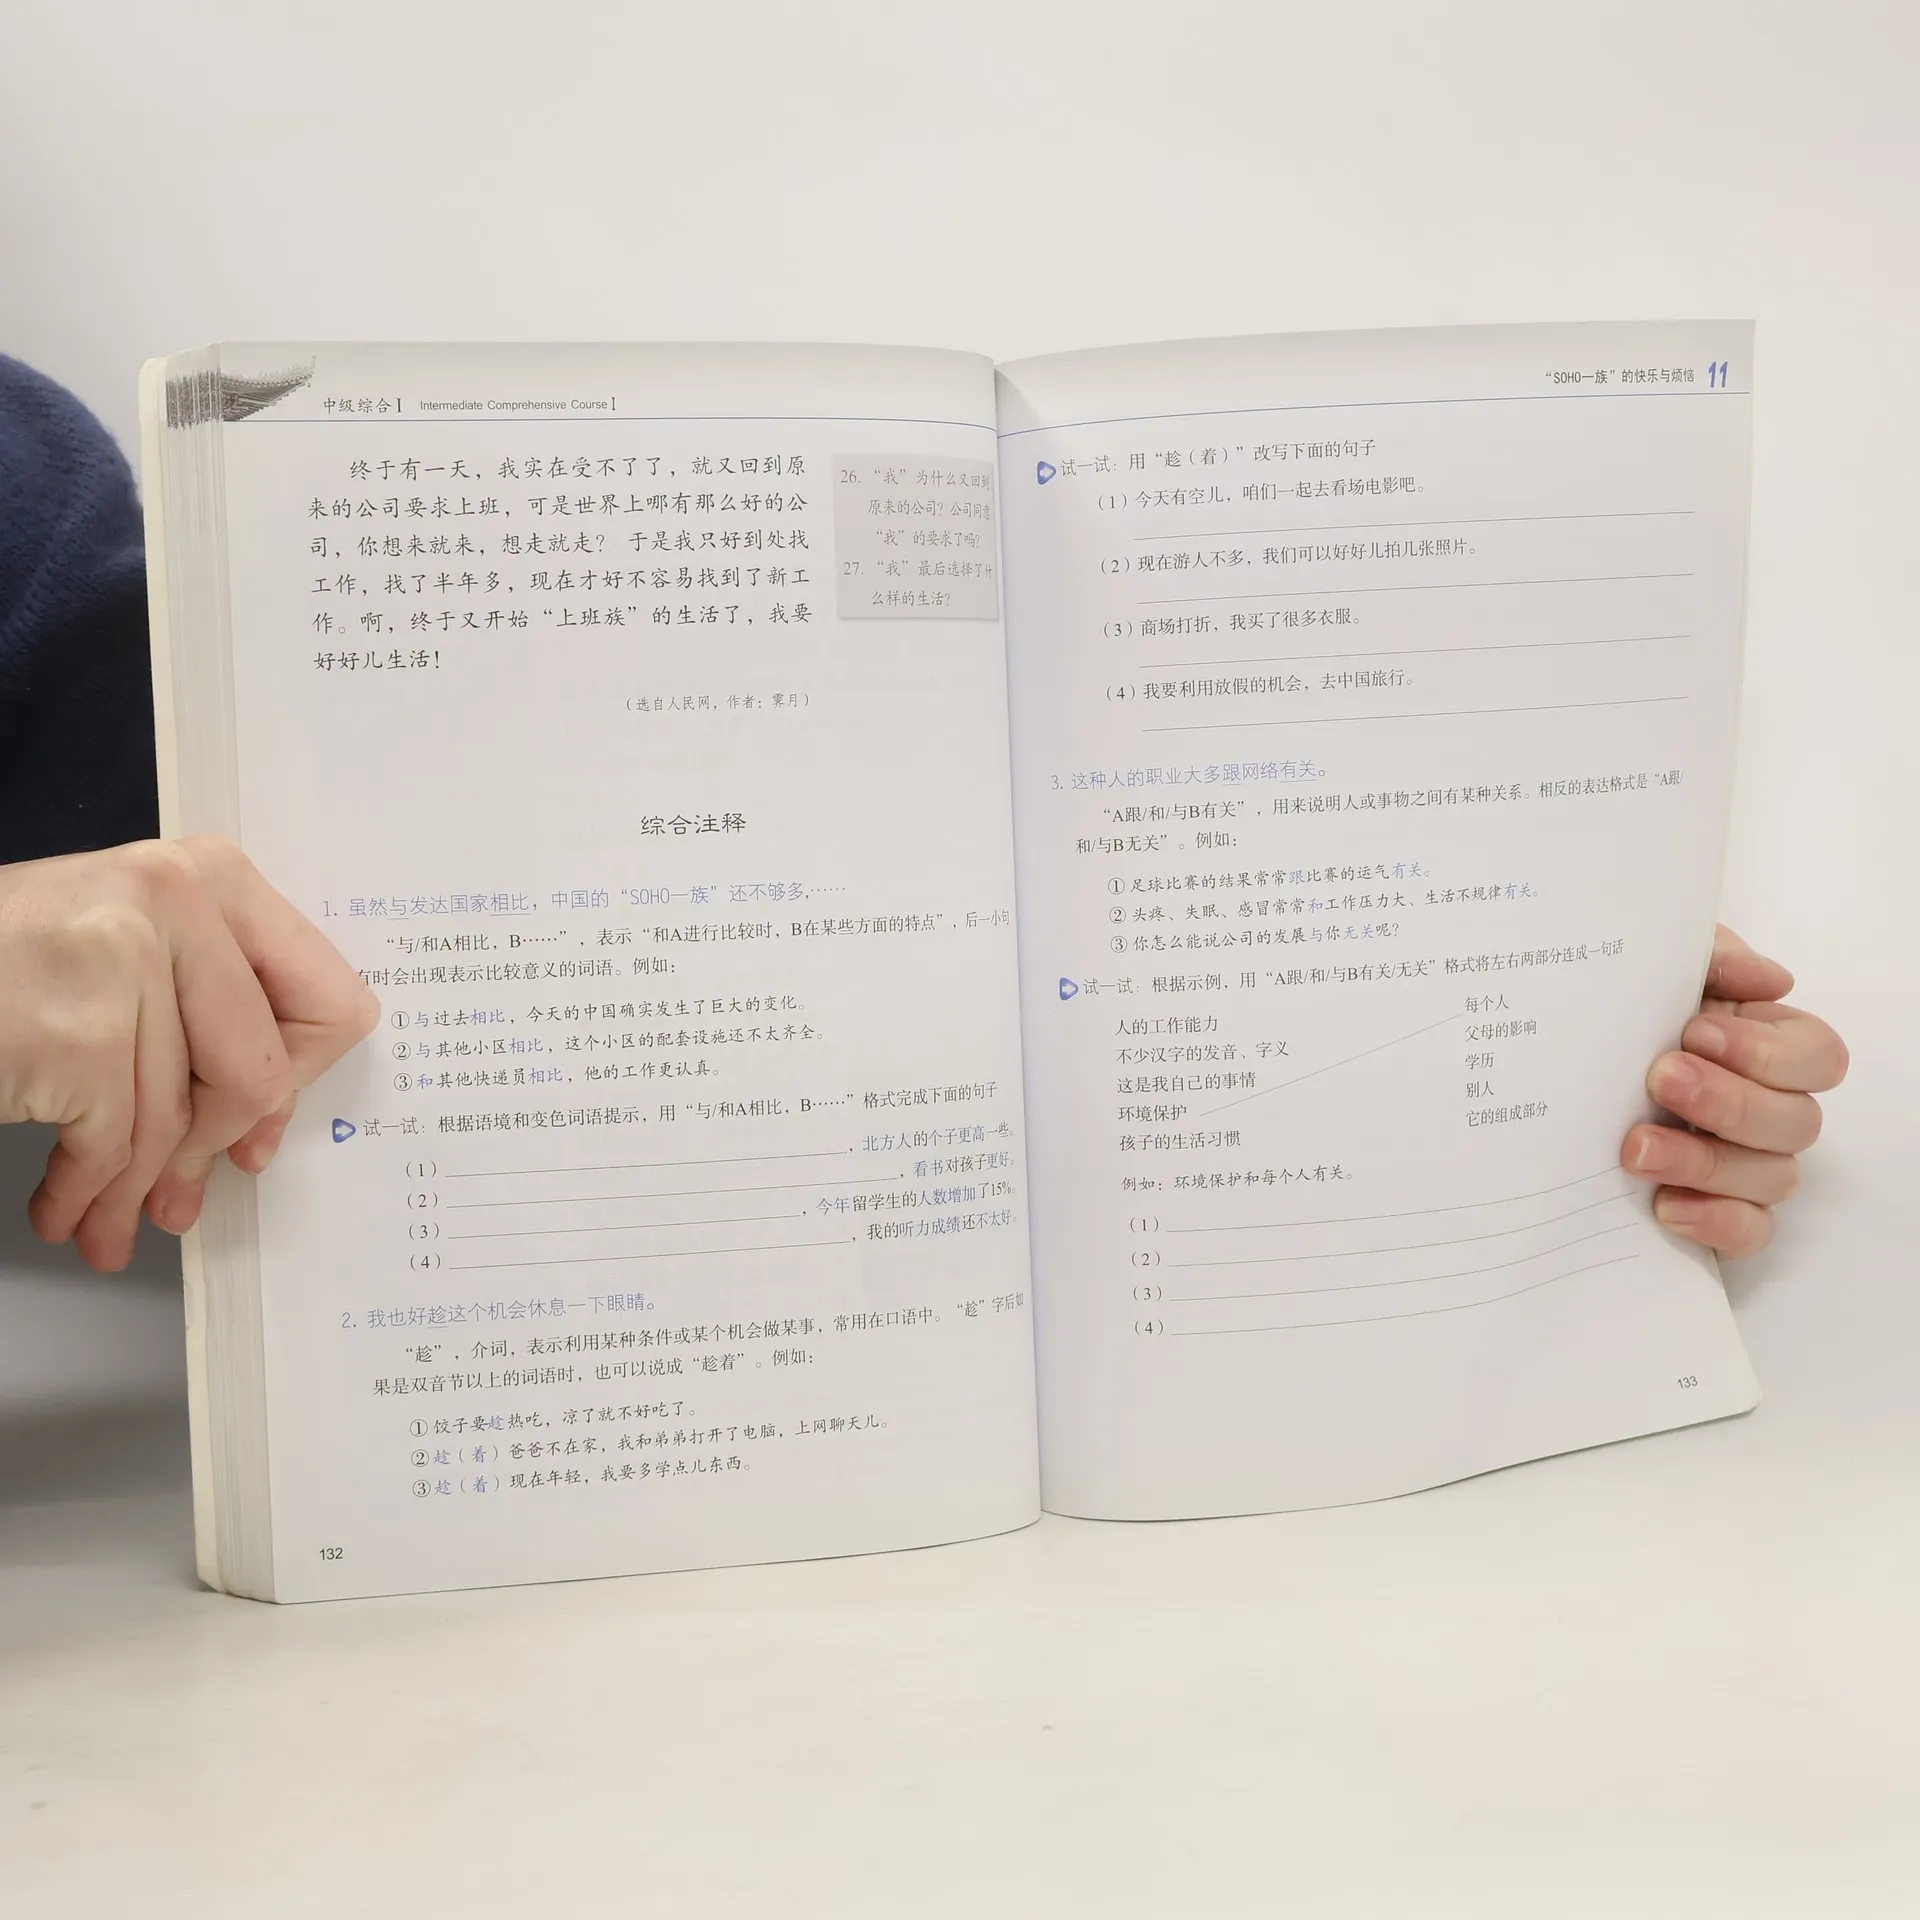 中级综合Ⅰ Intermediate Comprehensive Course Ⅰ
终于有一天，我实在受不了了，就又回到原
来的公司要求上班，可是世界上哪有那么好的公
司，你想来就来，想走就走？于是我只好到处找
工作，找了半年多，现在才好不容易找到了新工
作。啊，终于又开始“上班族”的生活了，我要
好好儿生活！
（选自人民网，作者：霁月）
26. “我”为什么又回到
原来的公司？公司同意
“我”的要求了吗？
27. “我”最后选择了什
么样的生活？
综合注释
1. 虽然与发达国家相比，中国的“SOHO一族”还不够多，……
“与/和A相比，B……”，表示“和A进行比较时，B在某些方面的特点”，后一小句
有时会出现表示比较意义的词语。例如：
①与过去相比，今天的中国确实发生了巨大的变化。
②与其他小区相比，这个小区的配套设施还不太齐全。
③和其他快递员相比，他的工作更认真。
试一试：根据语境和变色词语提示，用“与/和A相比，B……”格式完成下面的句子
（1），北方人的个子更高一些。
（2），看书对孩子更好。
（3），今年留学生的人数增加了15%。
（4），我的听力成绩还不太好。
2. 我也好趁这个机会休息一下眼睛。
“趁”，介词，表示利用某种条件或某个机会做某事，常用在口语中。“趁”字后如
果是双音节以上的词语时，也可以说成“趁着”。例如：
①饺子要趁热吃，凉了就不好吃了。
②趁（着）爸爸不在家，我和弟弟打开了电脑，上网聊天儿。
③趁（着）现在年轻，我要多学点儿东西。
132
“SOHO一族”的快乐与烦恼 11
试一试：用“趁（着）”改写下面的句子
（1）今天有空儿，咱们一起去看场电影吧。
（2）现在游人不多，我们可以好好儿拍几张照片。
（3）商场打折，我买了很多衣服。
（4）我要利用放假的机会，去中国旅行。
3. 这种人的职业大多跟网络有关。
“A跟/和/与B有关”，用来说明人或事物之间有某种关系。相反的表达格式是“A跟/
和/与B无关”。例如：
①足球比赛的结果常常跟比赛的运气有关。
②头疼、失眠、感冒常常和工作压力大、生活不规律有关。
③你怎么能说公司的发展与你无关呢？
试一试：根据示例，用“A跟/和/与B有关/无关”格式将左右两部分连成一句话
人的工作能力 每个人
不少汉字的发音、字义 父母的影响
这是我自己的事情 学历
环境保护 别人
孩子的生活习惯 它的组成部分
例如：环境保护和每个人有关。
（1）
（2）
（3）
（4）
133